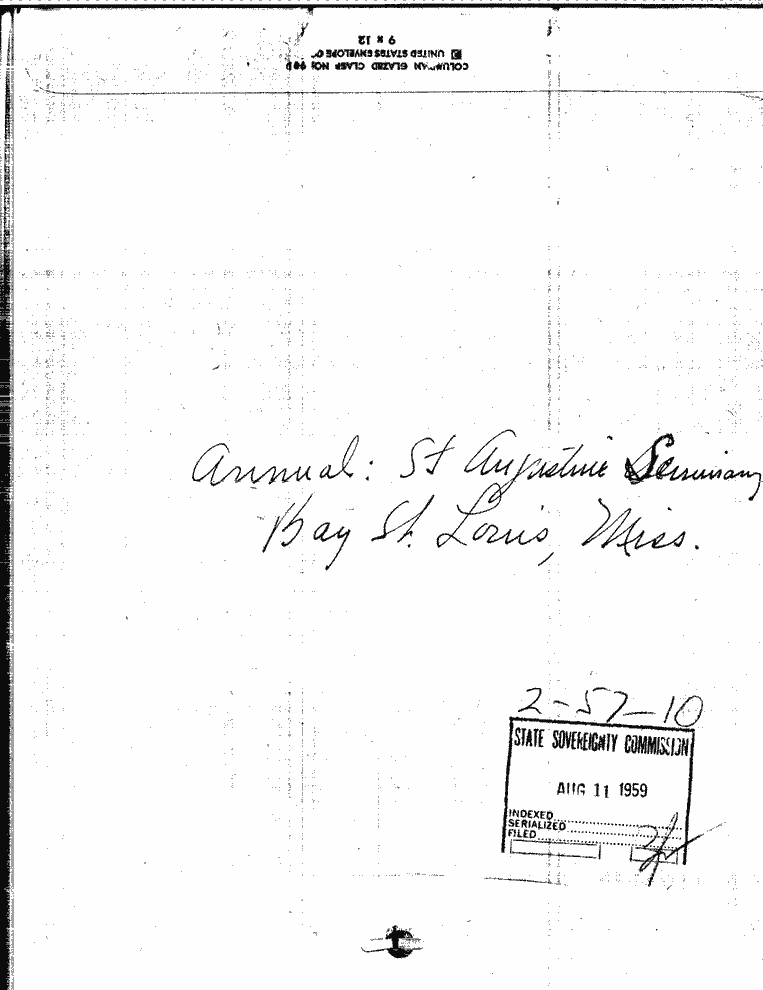 9 x 12
UNITED STATES ENVELOPE
GLAZED CLASP NO.
Annual: St Augustine Seminary
Bay St. Louis, Miss.
2-57-10
STATE SOVEREIGNTY COMMISSION
AUG 11 1959
INDEXED
SERIALIZED
FILED